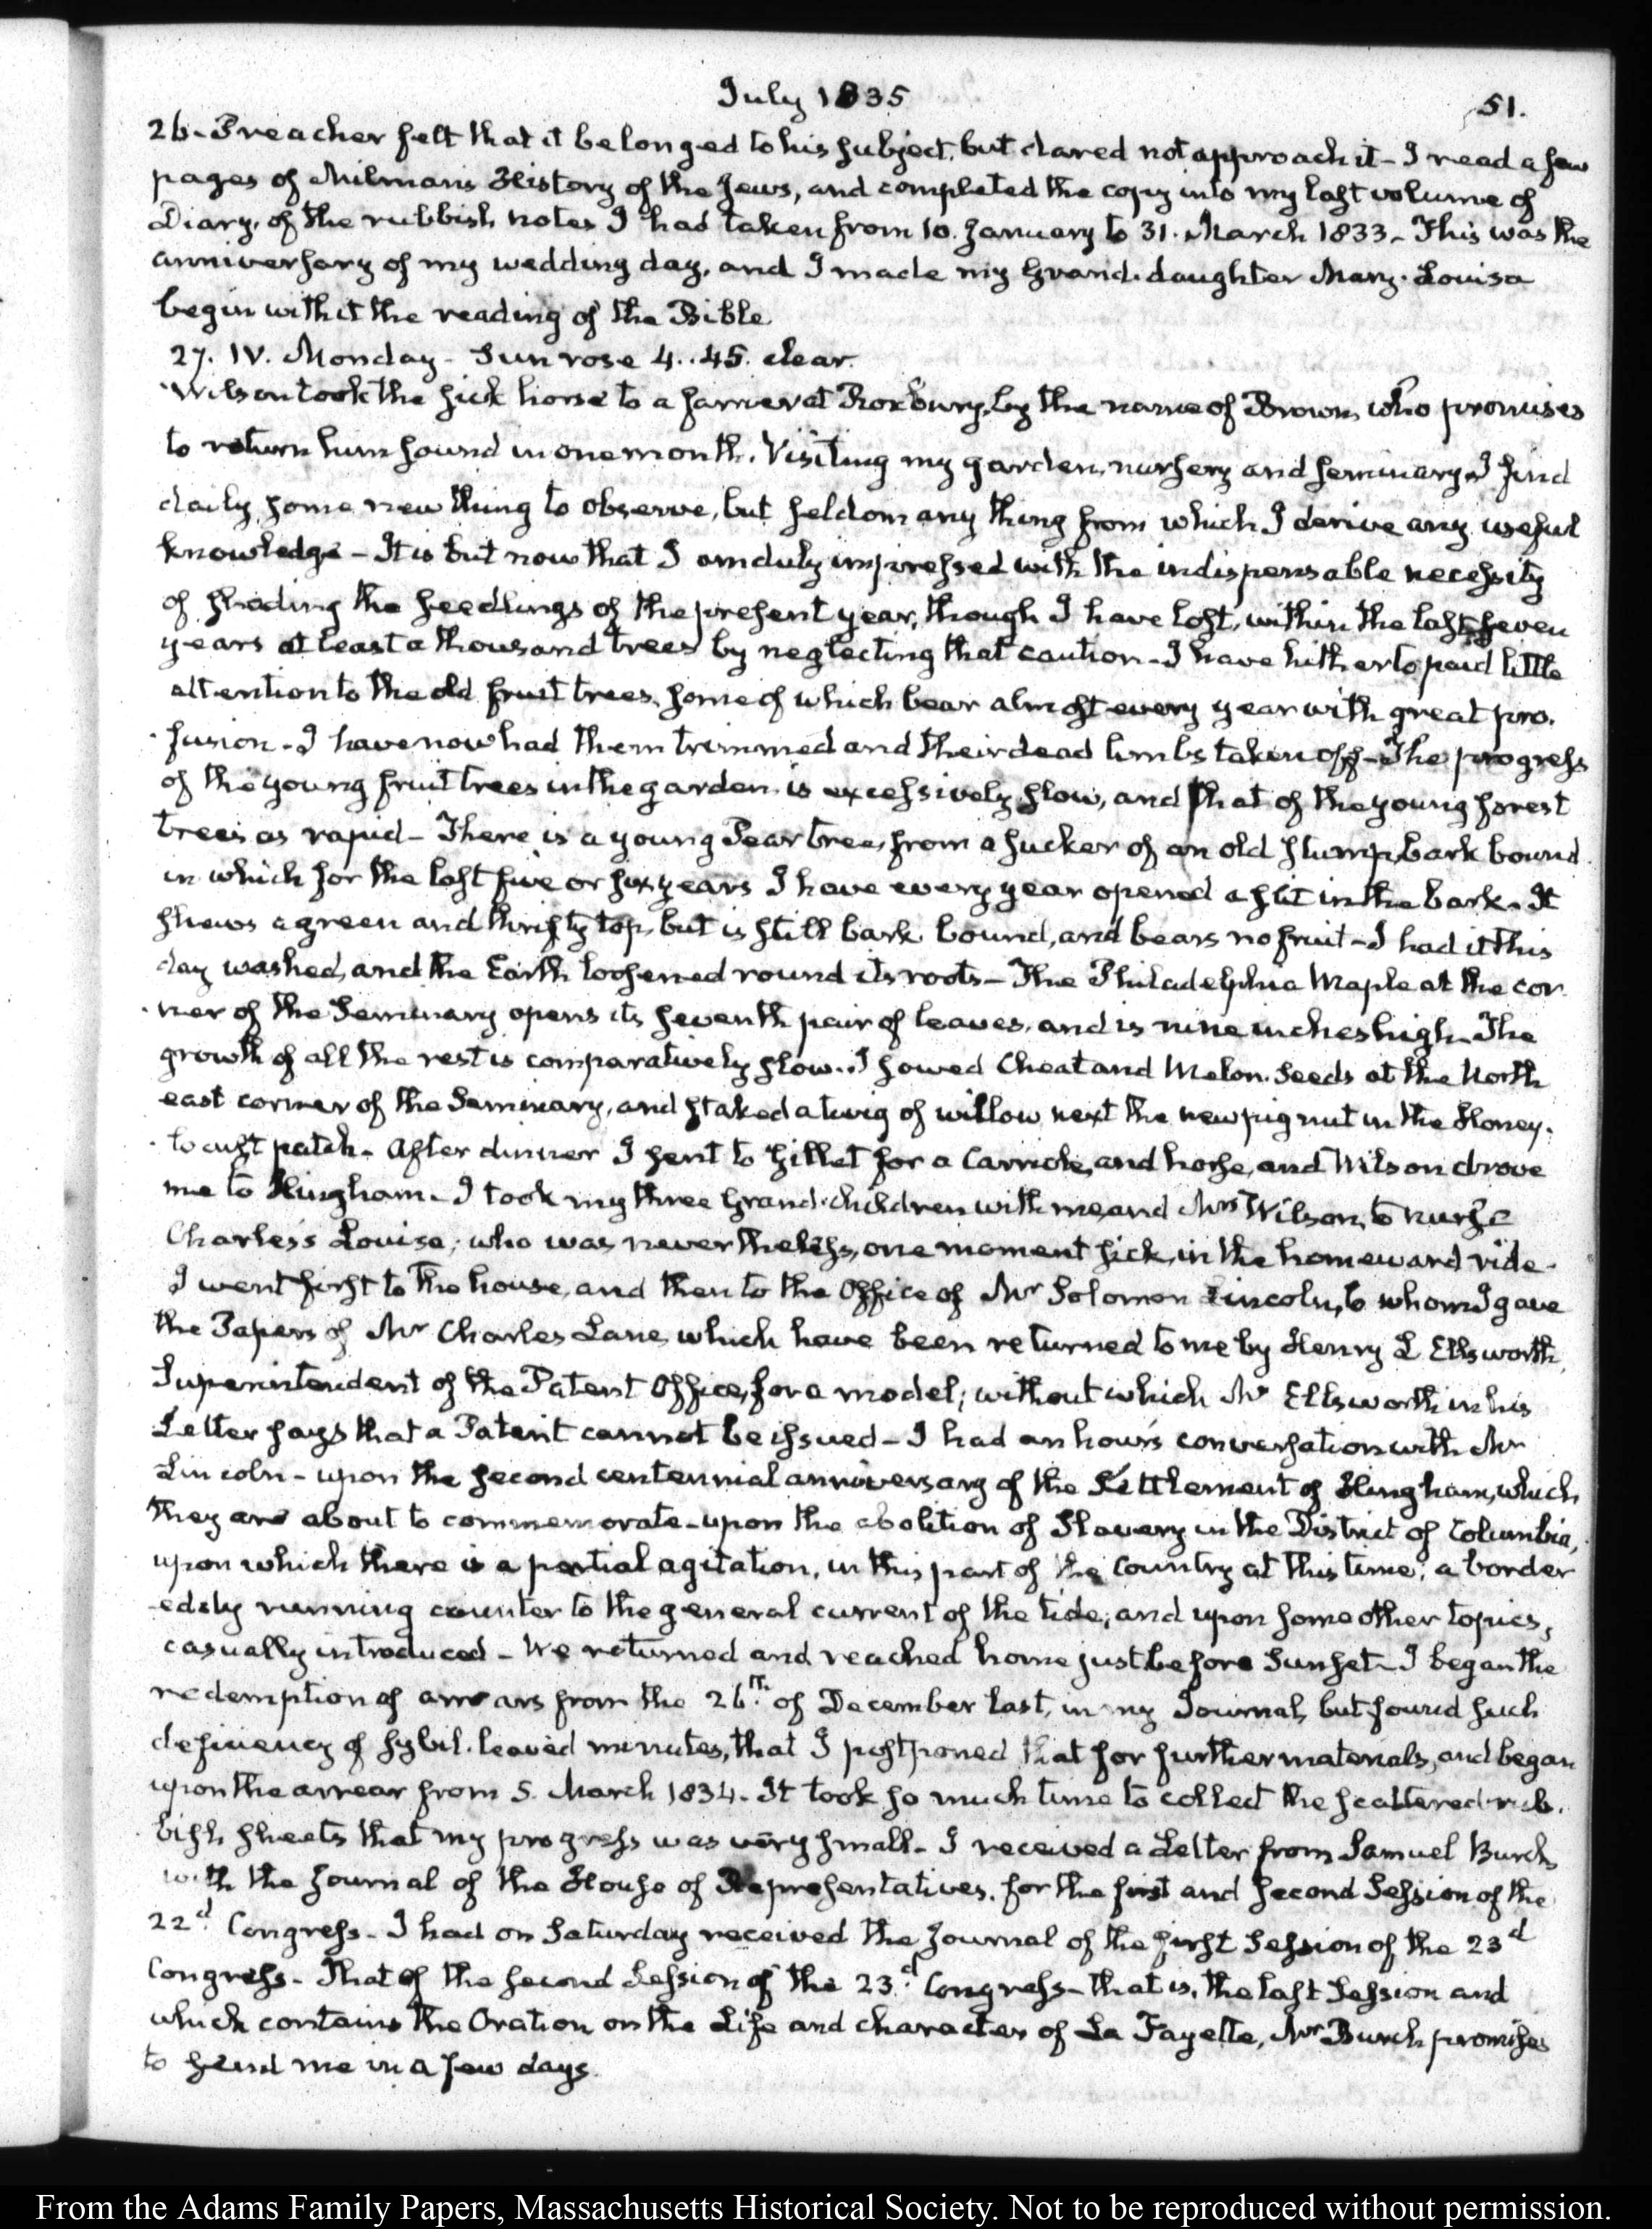 July 1835
51.
26. Preacher felt that it belonged to his subject, but dared not approach it - I read a few
pages of Milman's History of the Jews, and completed the copy into my last volume of
Diary, of the rubbish notes I had taken from 10. January to 31. March 1833. This was the
anniversary of my wedding day, and I made my Grand-daughter Mary-Louisa
begin with it the reading of the Bible.
27. IV. Monday - Sun rose 4..45. clear.
Wilson took the sick horse to a farrier at Roxbury, by the name of Brown, who promises
to return him sound in one month. Visiting my garden, nursery and seminary I find
daily some new thing to observe, but seldom any thing from which I derive any useful
knowledge - It is but now that I am duly impressed with the indispensable necessity
of shading the seedlings of the present year, though I have lost, within the last seven
years at least a thousand trees by neglecting that caution - I have hitherto paid little
attention to the old fruit trees, some of which bear almost every year with great pro-
fusion - I have now had them trimmed and their dead limbs taken off - The progress
of the young fruit trees in the garden is excessively slow, and that of the young forest
trees as rapid - There is a young Pear tree, from a sucker of an old stump, bark bound
in which for the last five or six years I have every year opened a slit in the bark. It
shews a green and thrifty top, but is still bark bound, and bears no fruit - I had it this
day washed, and the Earth loosened round its roots - The Philadelphia Maple at the cor-
ner of the Seminary opens its seventh pair of leaves, and is nine inches high. The
growth of all the rest is comparatively slow. I sowed Cheat and Melon Seeds at the North
east corner of the Seminary, and staked a twig of willow next the new pig nut in the Honey-
locust patch. After dinner I sent to Gillet for a Carriole, and horse, and Wilson drove
me to Hingham. I took my three Grand-children with me, and Mrs Wilson, to nurse
Charles's Louisa; who was nevertheless, one moment sick, in the homeward ride.
I went first to the house, and then to the Office of Mr Solomon Lincoln, to whom I gave
the Papers of Mr Charles Lane, which have been returned to me by Henry L Ellsworth,
Superintendent of the Patent Office, for a model; without which Mr Ellsworth in his
Letter says that a Patent cannot be issued - I had an hour's conversation with Mr
Lincoln - upon the second centennial anniversary of the Settlement of Hingham, which
they are about to commemorate - upon the abolition of Slavery in the District of Columbia,
upon which there is a partial agitation, in this part of the Country at this time; a border
edsly running counter to the general current of the tide; and upon some other topics,
casually introduced - We returned and reached home just before Sunset - I began the
redemption of arrears from the 26th. of December last, in my Journal, but found such
deficiency of sybil-leaved minutes, that I postponed that for further materials, and began
upon the arrear from 5. March 1834. It took so much time to collect the scattered rub-
bish sheets that my progress was very small - I received a Letter from Samuel Burch
with the Journal of the House of Representatives, for the first and second Session of the
22d. Congress - I had on Saturday received the Journal of the first Session of the 23d
Congress - That of the second Session of the 23d. Congress - that is, the last Session and
which contains the Oration on the Life and character of La Fayette, Mr Burch promises
to send me in a few days.
From the Adams Family Papers, Massachusetts Historical Society. Not to be reproduced without permission.